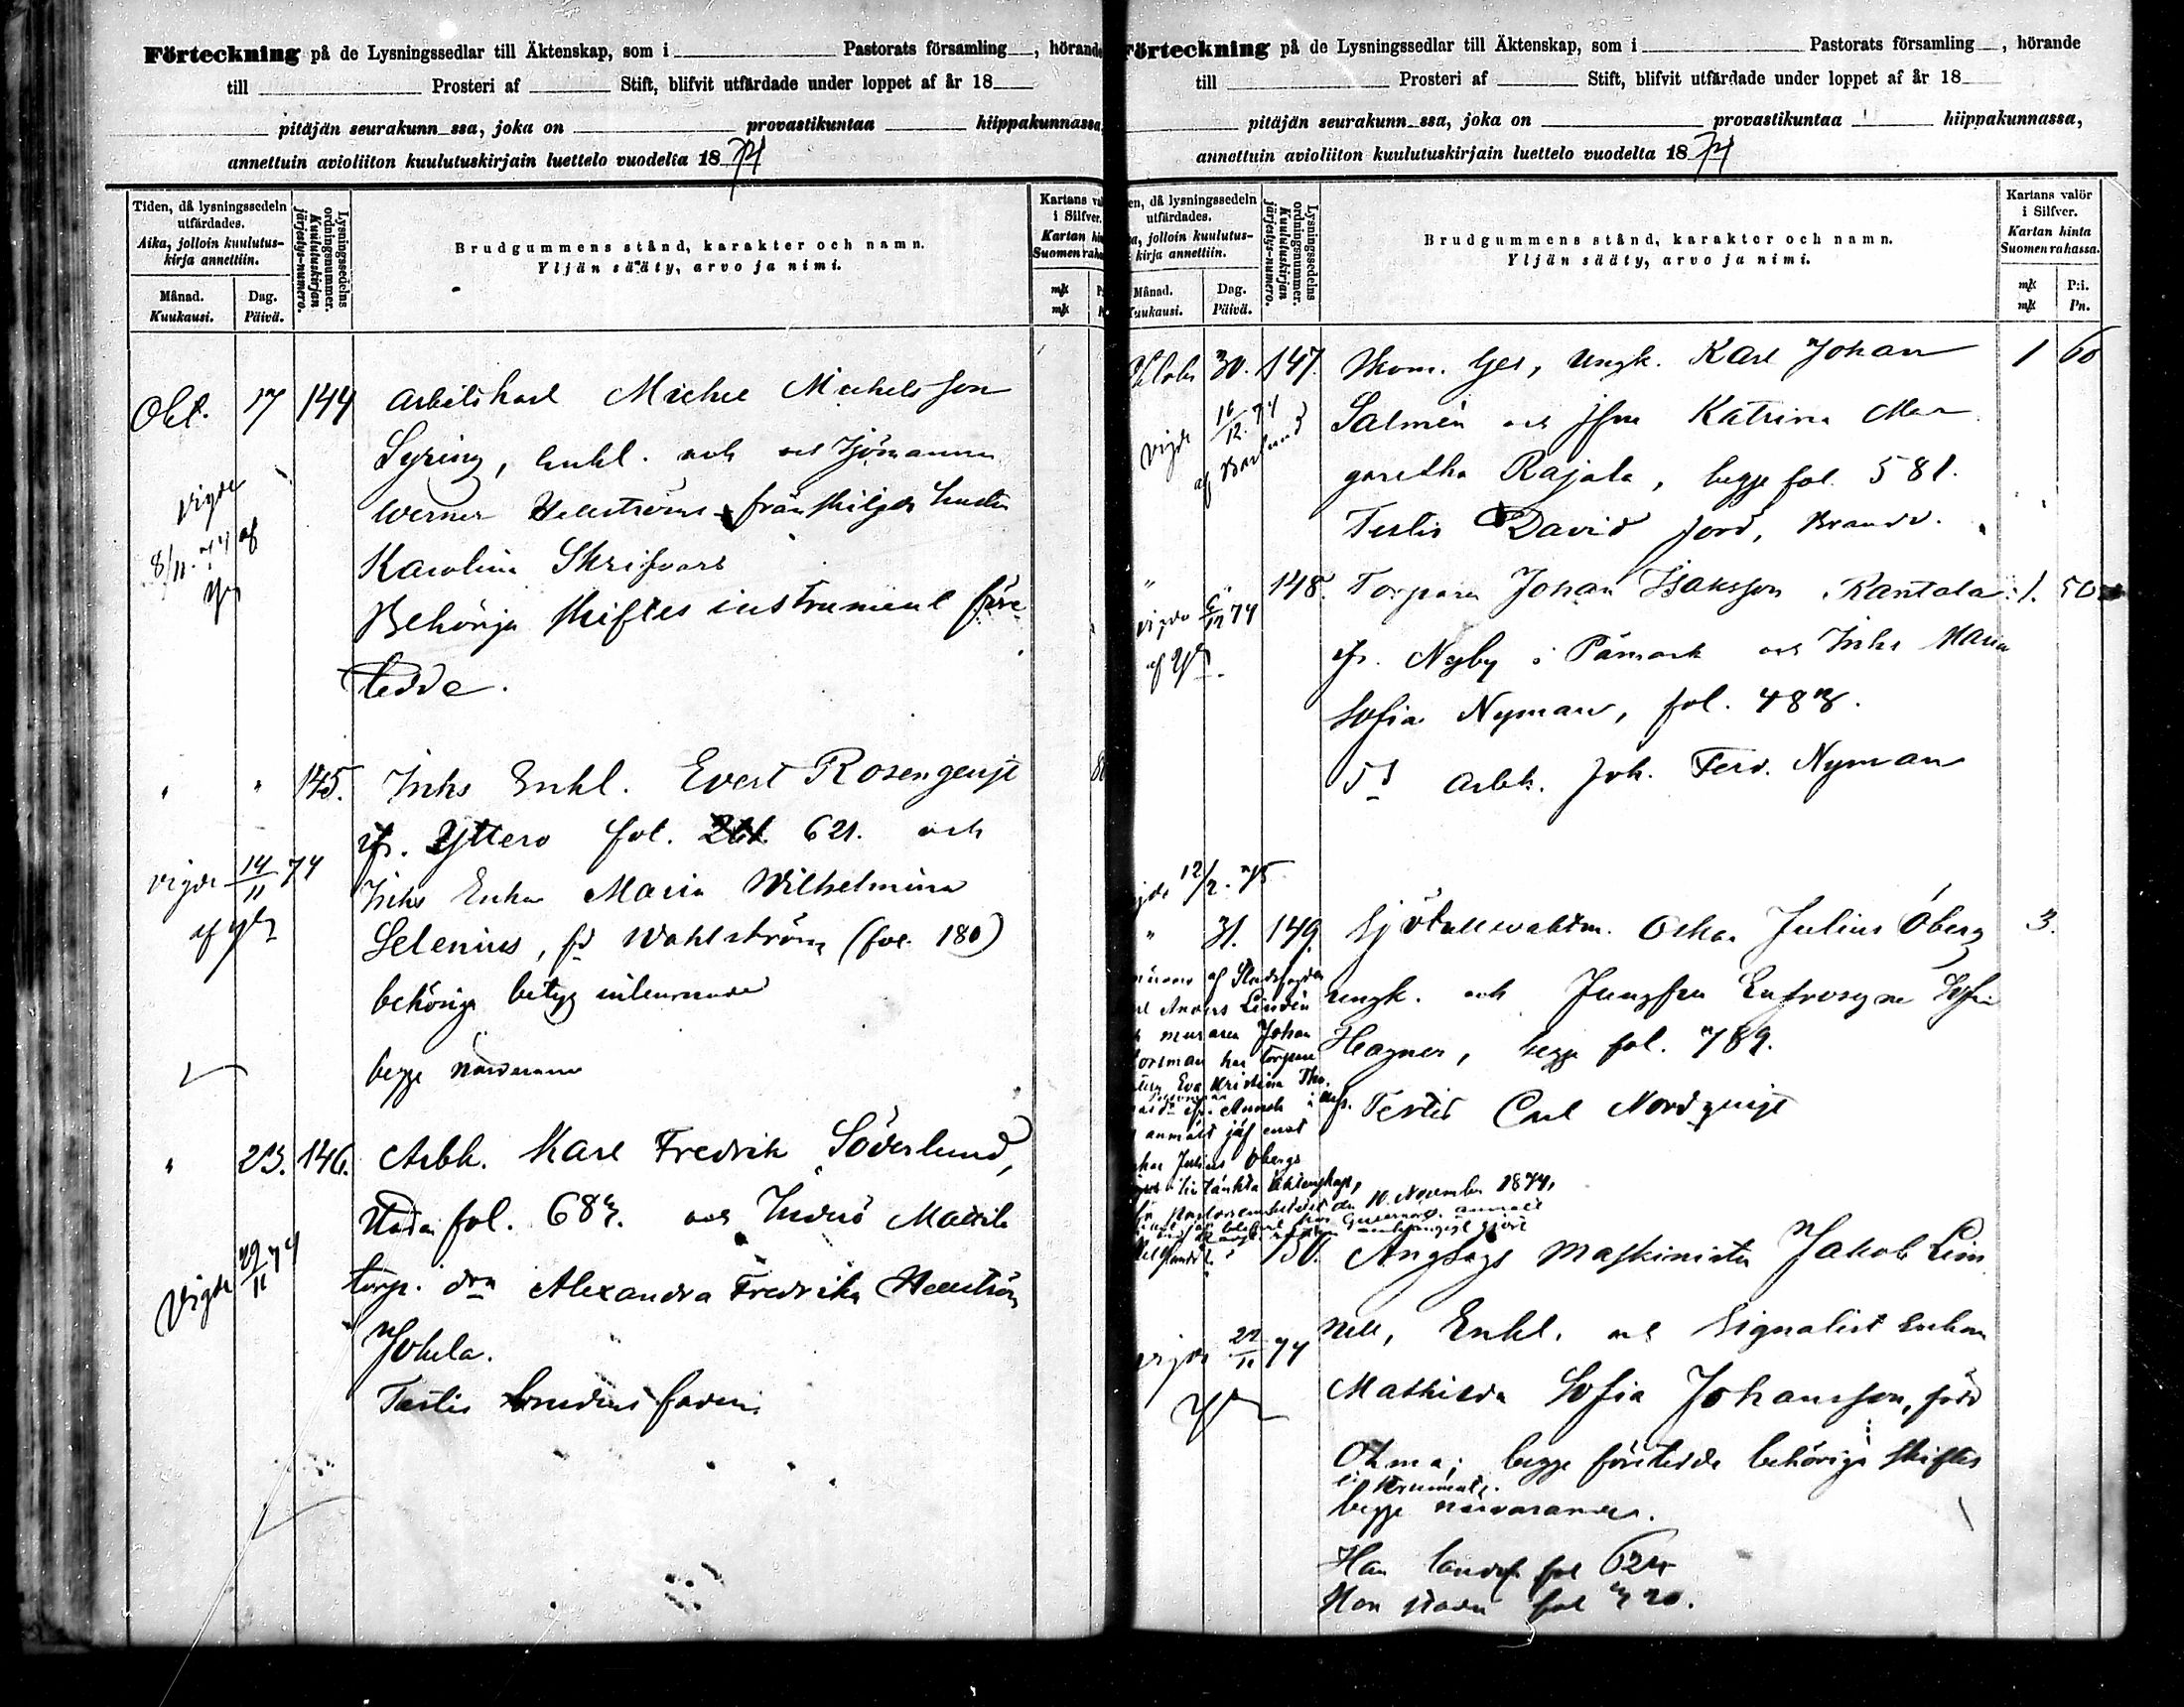 Förteckning på de Lysningssedlar till Äktenskap, som i Pastorats församling, hörande
till Prosteri af Stift, blifvit utfärdade under loppet af år 18
pitäjän seurakunn ssa, joka on provastikuntaa hiippakunnassa,
annettuin avioliiton kuulutuskirjain luettelo vuodelta 1874
Tiden, då lysningssedeln utfärdades.
Aika, jolloin kuulutus-kirja annettiin.
Månad.
Kuukausi.
Dag.
Päivä.
Lysningssedelns ordningsnummer.
Kuulutuskirjan järjestys-numero.
Brudgummens stånd, karakter och namn.
Yljän sääty, arvo ja nimi.
Kartans val
i Silfver.
Kartan hin
Suomen raha
mk
mk
Okt. 17 144 Arbetskarl Michel Michelsson
Syring, enkl. och Sjömannen
Werner Hellströms frånskiljda hustru
Karolina Skrifvars
Behöriga skiftesinstrument före
tedde.
vigde
8/11. 74 af
" " 145. Inhs Enkl. Evert Rosenqvist
ifr. Yttero fol. 621. och
Inhs Enka Maria Wilhelmina
Selenius, fd Wahlström (fol. 180)
behöriga betyg
begge närvarande
vigde 14/11 74
af
" 23. 146. Arbk. Karl Fredrik Söderlund,
staden fol. 687. och
torp. dr Alexandra Fredrika Hellström
Jokela.
Testis brudens fader.
Vigde 29/11 74
Förteckning på de Lysningssedlar till Äktenskap, som i Pastorats församling, hörande
till Prosteri af Stift, blifvit utfärdade under loppet af år 18
pitäjän seurakunn ssa, joka on provastikuntaa hiippakunnassa,
annettuin avioliiton kuulutuskirjain luettelo vuodelta 1874
en, då lysningssedeln utfärdades.
a, jolloin kuulutus-kirja annettiin.
Månad.
uukausi.
Dag.
Päivä.
Lysningssedelns ordningsnummer.
Kuulutuskirjan järjestys-numero.
Brudgummens stånd, karakter och namn.
Yljän sääty, arvo ja nimi.
Kartans valör
i Silfver.
Kartan hinta
Suomen rahassa.
mk P:i.
mk Pn.
30. 147. Skom. Ges, Ungk. Karl Johan 1 60
Salmén och Jfru Katrina Mar
garetha Rajala, begge fol. 581.
Testis David Jord, Brandv.
vigde 16/12. 74
af
" " 148. Torparen Johan Isaksson Rantala 1. 50
ifr. Nyby i Påmark och Inhs Maria
Sofia Nyman, fol. 483.
Ts Arbk. Joh. Ferd. Nyman
vigde 6/12 74
af
12/2. 75
" 31. 149. Sjötullvaktm. Oskar Julius Öberg 3.
ungk. och Jungfru Eufrosyne Sofia
Hagner, begge fol. 789.
Testis Carl Nordqvist
af Stadsfogden
Anders Lindén
muraren Johan
har torpare
Eva Kristina
anmält jäf emot
Julius Öbergs
tilltänkta äktenskap,
10. November 1874,
150. Ånglogs maskinisten Jakob Lin
nell, Enkl. och Signalist Enkan
Mathilda Sofia Johansson, född
Ohma; begge företedde behöriga skiftes
instrumenter.
begge närvarande.
Han landsf. fol 624
Hon staden fol 720.
vigde 22/11 74